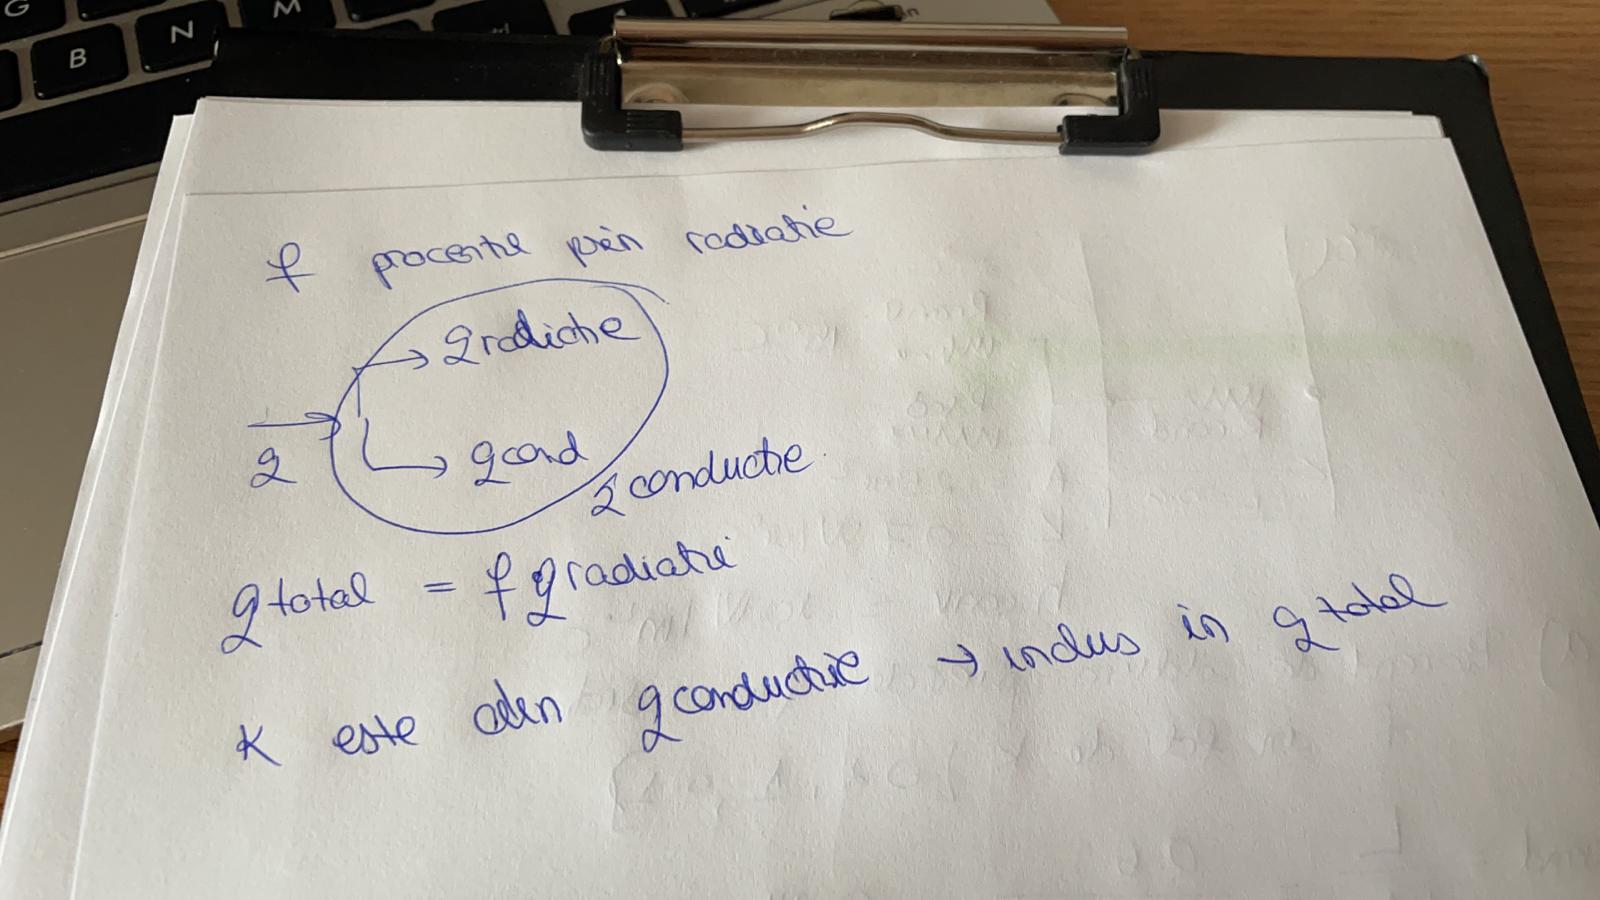 G
M
B
N
f procente prin radiatie
q radiatie
q
q cond
q conductie
q total = f q radiatie
K este din q conductie → inclus in q total